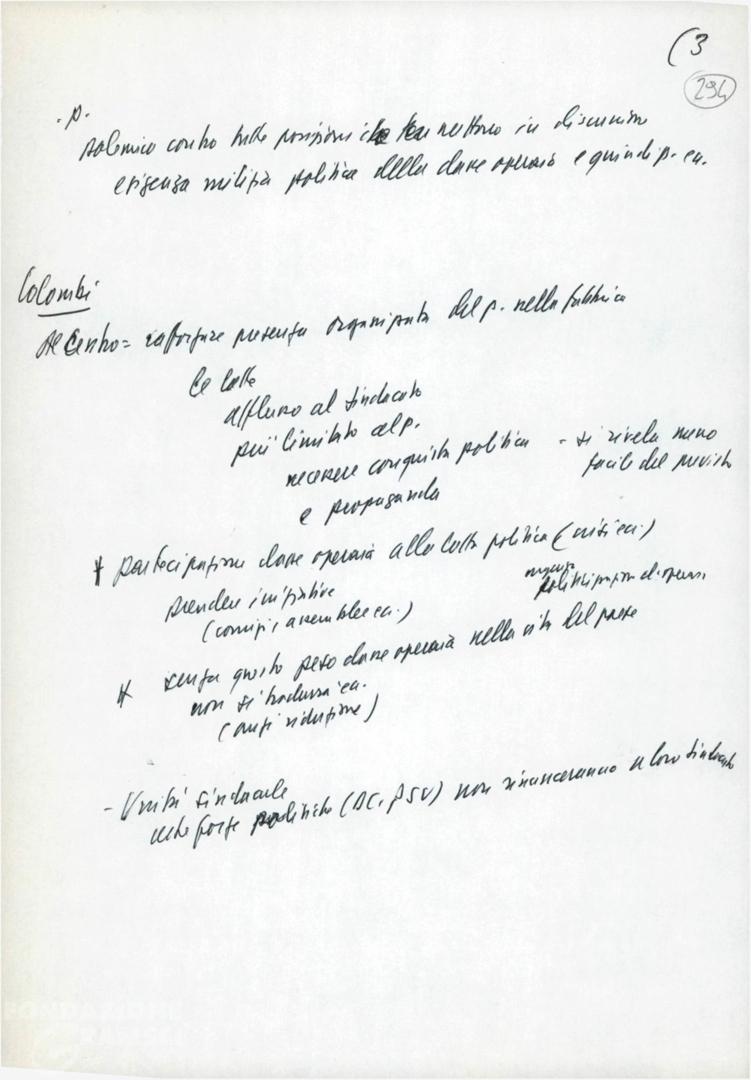 (3
294
- p.
polemico contro tutte posizioni che mettono in discussione
esigenza milizia politica della classe operaia e quindi p. ecc.
Colombi
Al Centro = rafforzare presenza organizzata del p. nella fabbrica
Le lotte
afflusso al sindacato
più limitato al p.
necessere conquista politica - si rivela meno
facile del previsto
e propaganda
+ partecipazione classe operaia alla lotta politica (crisi ecc.)
prendere iniziative
politicizzazione di operai
(comizi, assemblee ecc.)
+ senza questo peso classe operaia nella vita del paese
non si traduce ecc.
(anzi riduzione)
- Unità sindacale
certe forze politiche (DC, PSU) non rinunceranno a loro sindacato
FONDAZIONE
GRAMSCI